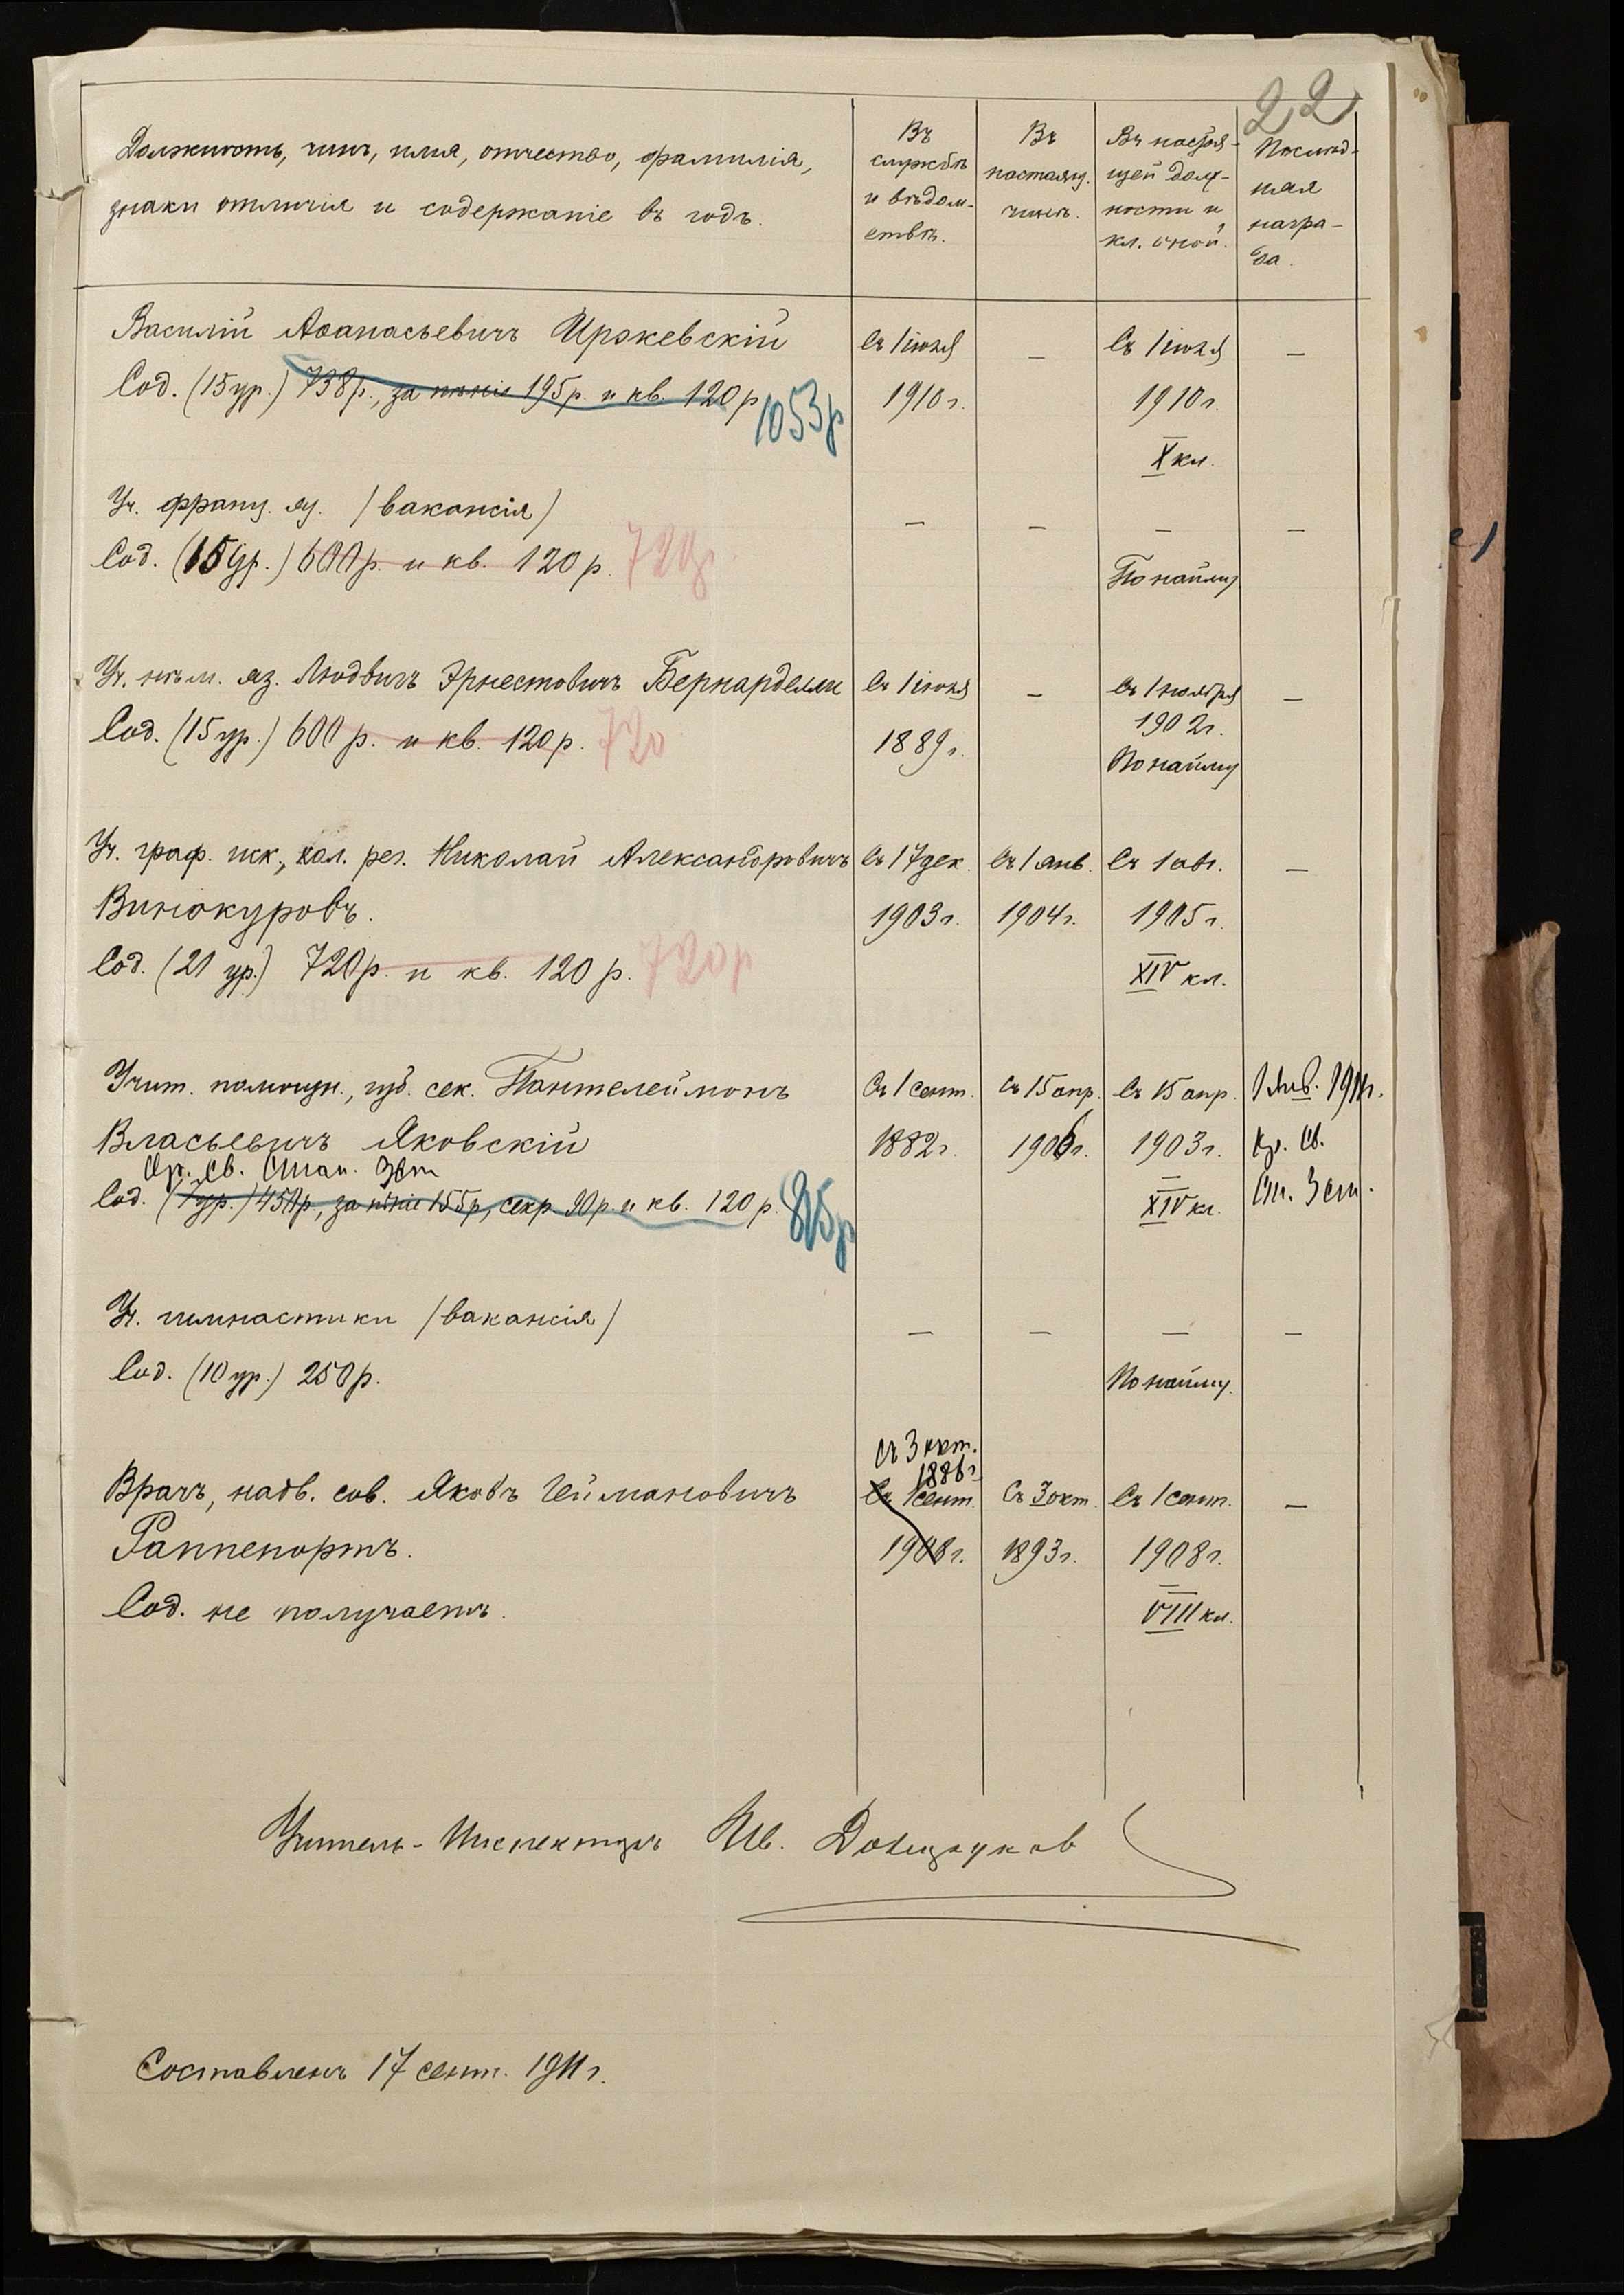 22
Должность, чинъ, имя, отчество, фамилія,
знаки отличія и содержаніе въ годъ.
Въ
службѣ
и вѣдом-
ствѣ.
Въ
настоящ.
чинѣ.
Въ настоя-
щей долж-
ности и
кл. оной.
Послѣд-
няя
награ-
да.
Василій Аѳанасьевичъ Иржевскій
Сод. (15 ур.) 738 р., за пѣніе 195 р. и кв. 120 р
1053 р
Съ 1 іюля
1910 г.
—
Съ 1 іюля
1910 г.
X кл.
—
Уч. франц. яз. (вакансія)
Сод. (15 ур.) 600 р. и кв. 120 р. 720р
—
—
—
По найму
—
Уч. нѣм. яз. Людвигъ Эрнестовичъ Бернарделли
Сод. (15 ур.) 600 р. и кв. 120 р. 720
Съ 1 іюля
1889 г.
—
Съ 1 ноября
1902 г.
По найму
—
Уч. граф. иск., кол. рег. Николай Александровичъ
Винокуровъ.
Сод. (21 ур.) 720 р. и кв. 120 р. 720 р
Съ 17 дек.
1903 г.
Съ 1 янв.
1904 г.
Съ 1 авг.
1905 г.
XIV кл.
—
Учит. помощн., губ. сек. Пантелеймонъ
Власьевичъ Яковскій
Ор. Св. Стан. 3 ст
Сод. (7 ур.) 450 р, за пѣніе 155 р, секр 90 р. и кв. 120 р.
815 р
Съ 1 сент.
1882 г.
Съ 15 апр.
1906 г.
Съ 15 апр.
1903 г.
XIV кл.
1 Янв. 1911 г.
Ор. Св.
Ст. 3 ст.
Уч. гимнастики (вакансія)
Сод. (10 ур.) 250 р.
—
—
—
По найму.
—
Врачъ, надв. сов. Яковъ Геймановичъ
Раппепортъ.
Сод. не получаетъ.
Съ 3 окт.
1886 г
Съ 1 сент.
1908 г.
Съ 3 окт.
1893 г.
Съ 1 сент.
1908 г.
VIII кл.
—
Учитель-Инспекторъ Ив.
Составленъ 17 сент. 1911 г.